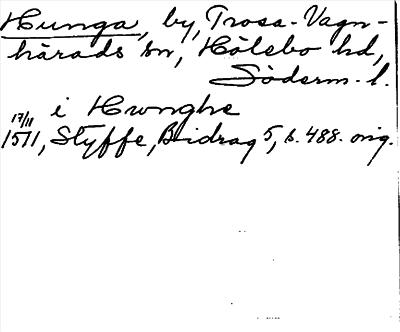 Hunga, by, Trosa-Vagn-
härads sn, Hölebo hd,
Söderm. l.
i Hwnghe
17/11
1511, Styffe, Bidrag 5, s. 488. orig.